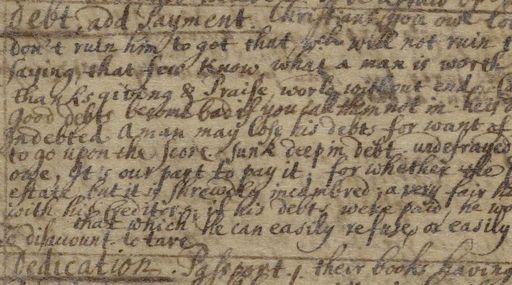 Debt. add Payment. Christians, you owe
Don't ruin him to get that, wch will not ruin
saying, that few know what a man is worth
Thanksgiving & Praise, world without end.
good debts become bad if you call them not in. he is
indebted A man may lose his debts for want of
to go upon the score. sunk deep in debt. undefrayed
owe, it is our part to pay it, for whether the
estate, but it is shrewdly incumbred, a very fair
with his creditor, if his debts were paid, he
that which he can easily refuse, or easily
disaccount. to tare
Dedication. Passport, their books having